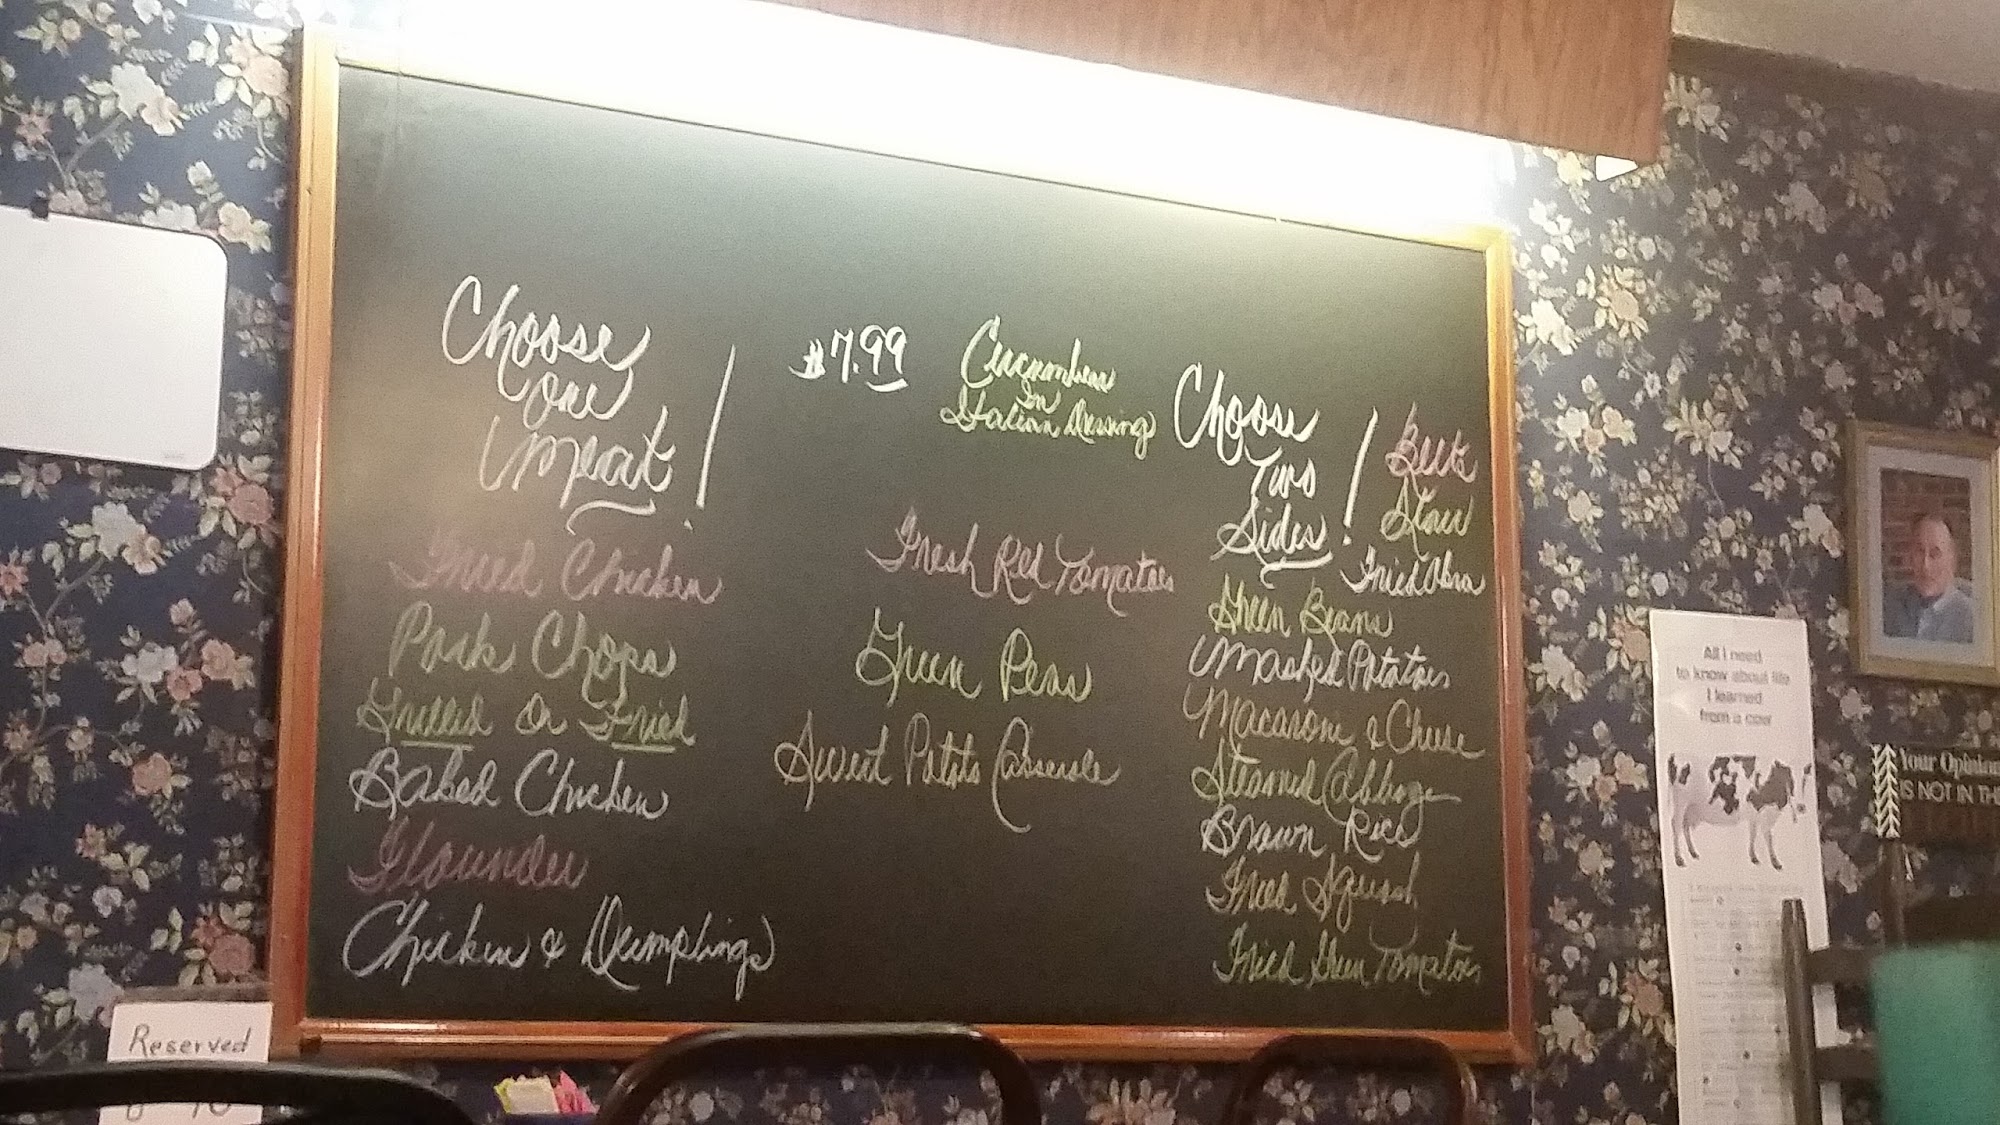 Choose
one
meat!
Fried Chicken
Pork Chops
Grilled Or Fried
Baked Chicken
Flounder
Chicken & Dumplings
$7.99
Cucumbers
In
Italian Dressing
Fresh Red Tomatoes
Green Peas
Sweet Potato Casserole
Choose
Two
Sides!
Beets
Slaw
Fried Okra
Green Beans
Mashed Potatoes
Macaroni & Cheese
Steamed Cabbage
Brown Rice
Fried Squash
Fried Green Tomatoes
Reserved
All I need
to know about life
I learned
from a cow
Your Opinion
IS NOT IN TH